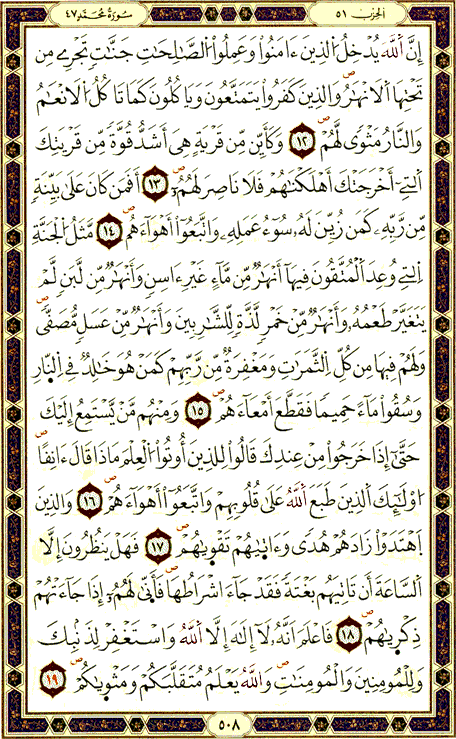 الحِزْب ٥١
سُورَةُ مُحَمَّدٍ ٤٧
إِنَّ اَ۬للَّهَ يُدْخِلُ اُ۬لذِينَ ءَامَنُواْ وَعَمِلُواْ اُ۬لصَّٰلِحَٰتِ جَنَّٰتٖ تَجْرِے مِن
تَحْتِهَا اَ۬لَانْهَٰرُۖ وَالذِينَ كَفَرُواْ يَتَمَتَّعُونَ وَيَاكُلُونَ كَمَا تَاكُلُ اُ۬لَانْعَٰمُ
وَالنَّارُ مَثْويٗ لَّهُمْۖ ١٢ وَكَأَيِّن مِّن قَرْيَةٍ هِيَ أَشَدُّ قُوَّةٗ مِّن قَرْيَتِكَ
اَ۬لتِےٓ أَخْرَجَتْكَ أَهْلَكْنَٰهُمْ فَلَا نَاصِرَ لَهُمُۥٓۖ ١٣ أَفَمَن كَانَ عَلَىٰ بَيِّنَةٖ
مِّن رَّبِّهِۦ كَمَن زُيِّنَ لَهُۥ سُوٓءُ عَمَلِهِۦ وَاتَّبَعُوٓاْ أَهْوَآءَهُمۖ ١٤ مَّثَلُ اُ۬لْجَنَّةِ
اِ۬لتِے وُعِدَ اَ۬لْمُتَّقُونَ فِيهَآ أَنْهَٰرٞ مِّن مَّآءٍ غَيْرِ ءَاسِنٖ وَأَنْهَٰرٞ مِّن لَّبَنٖ لَّمْ
يَتَغَيَّرْ طَعْمُهُۥ وَأَنْهَٰرٞ مِّنْ خَمْرٖ لَّذَّةٖ لِّلشَّٰرِبِينَ وَأَنْهَٰرٞ مِّنْ عَسَلٖ مُّصَفّيٗۖ
وَلَهُمْ فِيهَا مِن كُلِّ اِ۬لثَّمَرَٰتِ وَمَغْفِرَةٞ مِّن رَّبِّهِمْ كَمَنْ هُوَ خَٰلِدٞ فِے اِ۬لنَّارِ
وَسُقُواْ مَآءً حَمِيماٗ فَقَطَّعَ أَمْعَآءَهُمْۖ ١٥ وَمِنْهُم مَّنْ يَّسْتَمِعُ إِلَيْكَ
حَتَّىٰٓ إِذَا خَرَجُواْ مِنْ عِندِكَ قَالُواْ لِلذِينَ أُوتُواْ اُ۬لْعِلْمَ مَاذَا قَالَ ءَانِفاًۖ
ا۟وْلَٰٓئِكَ اَ۬لذِينَ طَبَعَ اَ۬للَّهُ عَلَىٰ قُلُوبِهِمْ وَاتَّبَعُوٓاْ أَهْوَآءَهُمْۖ ١٦ وَالذِينَ
اَ۪هْتَدَوْاْ زَادَهُمْ هُديٗ وَءَاتَىٰهُمْ تَقْوَىٰهُمْۖ ١٧ فَهَلْ يَنظُرُونَ إِلَّا
اَ۬لسَّاعَةَ أَن تَاتِيَهُم بَغْتَةٗۖ فَقَدْ جَآءَ اشْرَاطُهَاۖ فَأَنّ۪ىٰ لَهُمُۥٓ إِذَا جَآءَتْهُمْ
ذِكْر۪ىٰهُمْۖ ١٨ فَاعْلَمَ اَنَّهُۥ لَآ إِلَٰهَ إِلَّا اَ۬للَّهُ وَاسْتَغْفِرْ لِذَنۢبِكَ
وَلِلْمُومِنِينَ وَالْمُومِنَٰتِۖ وَاللَّهُ يَعْلَمُ مُتَقَلَّبَكُمْ وَمَثْو۪ىٰكُمْۖ ١٩
٥٠٨